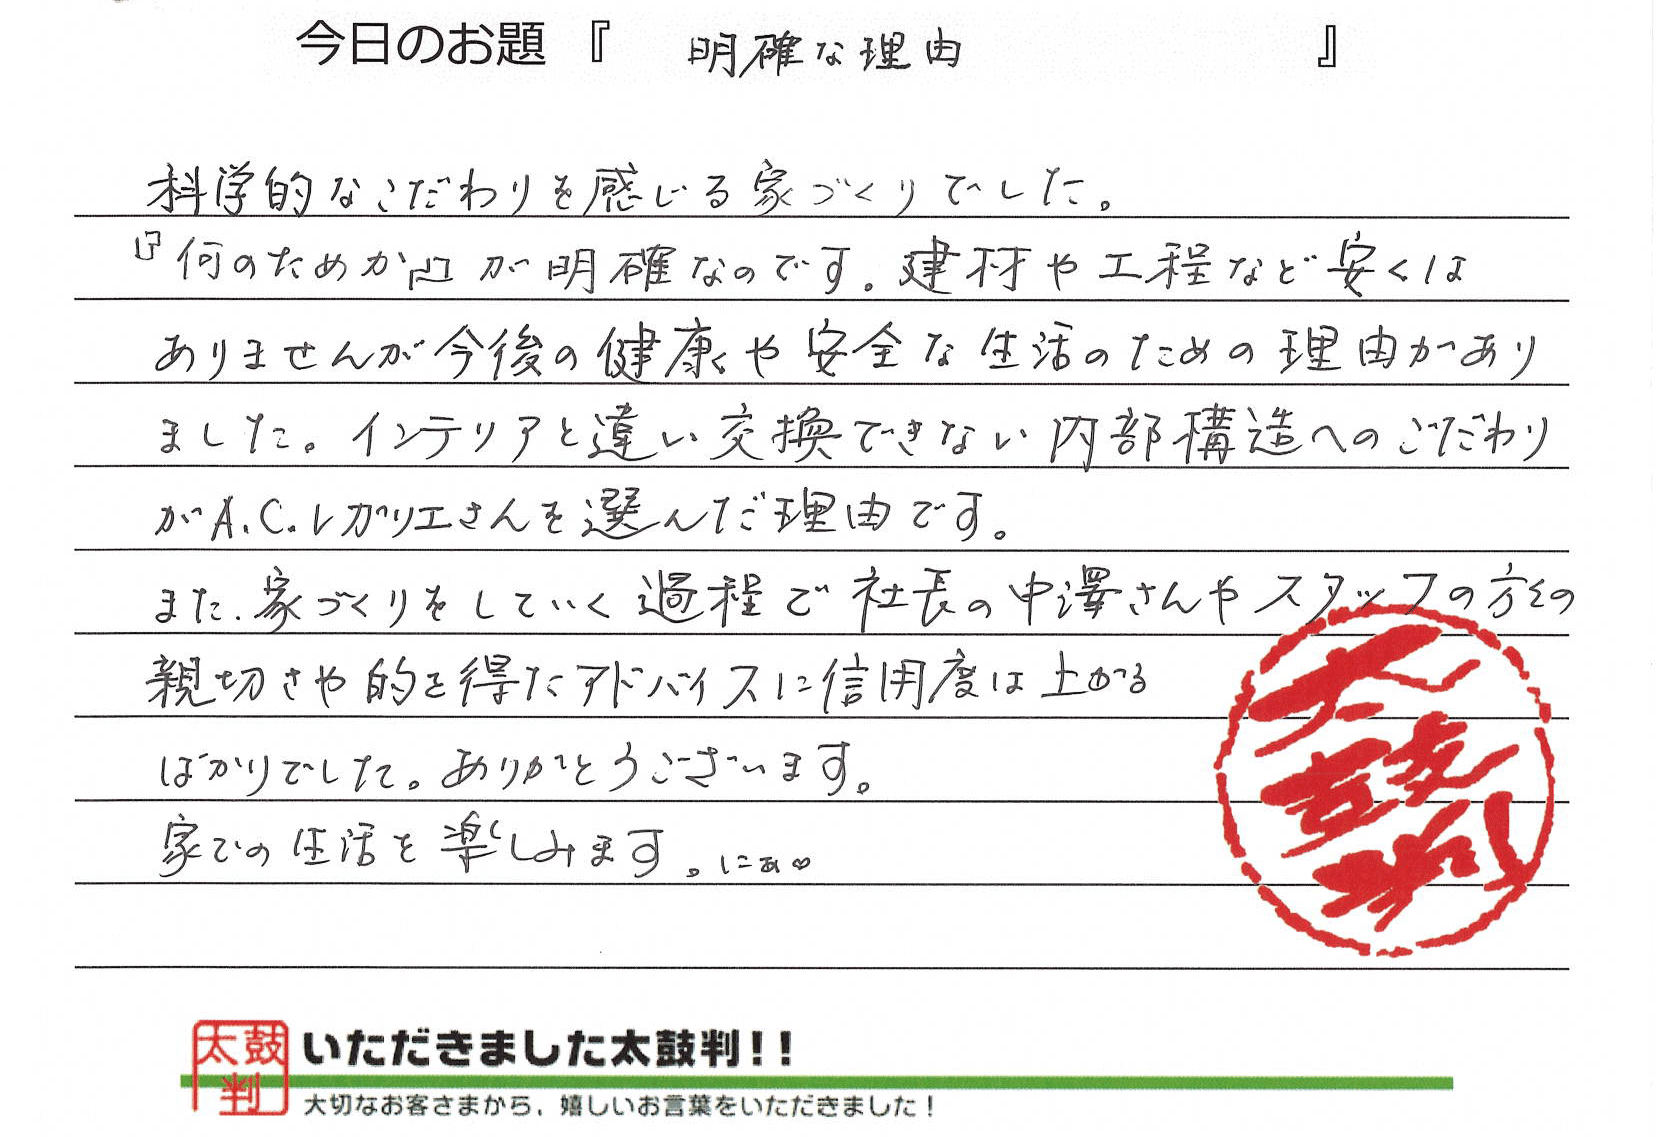 今日のお題『 明確な理由 』
科学的なこだわりを感じる家づくりでした。
『何のためか』が明確なのです。建材や工程など安くは
ありませんが今後の健康や安全な生活のための理由があり
ました。インテリアと違い交換できない内部構造へのこだわり
がA.C.レガリエさんを選んだ理由です。
また、家づくりをしていく過程で社長の中澤さんやスタッフの方々の
親切さや的を得たアドバイスに信用度は上がる
ばかりでした。ありがとうございます。
家での生活を楽しみます。にあ♡
太鼓判
太鼓判
いただきました太鼓判!!
大切なお客さまから、嬉しいお言葉をいただきました!